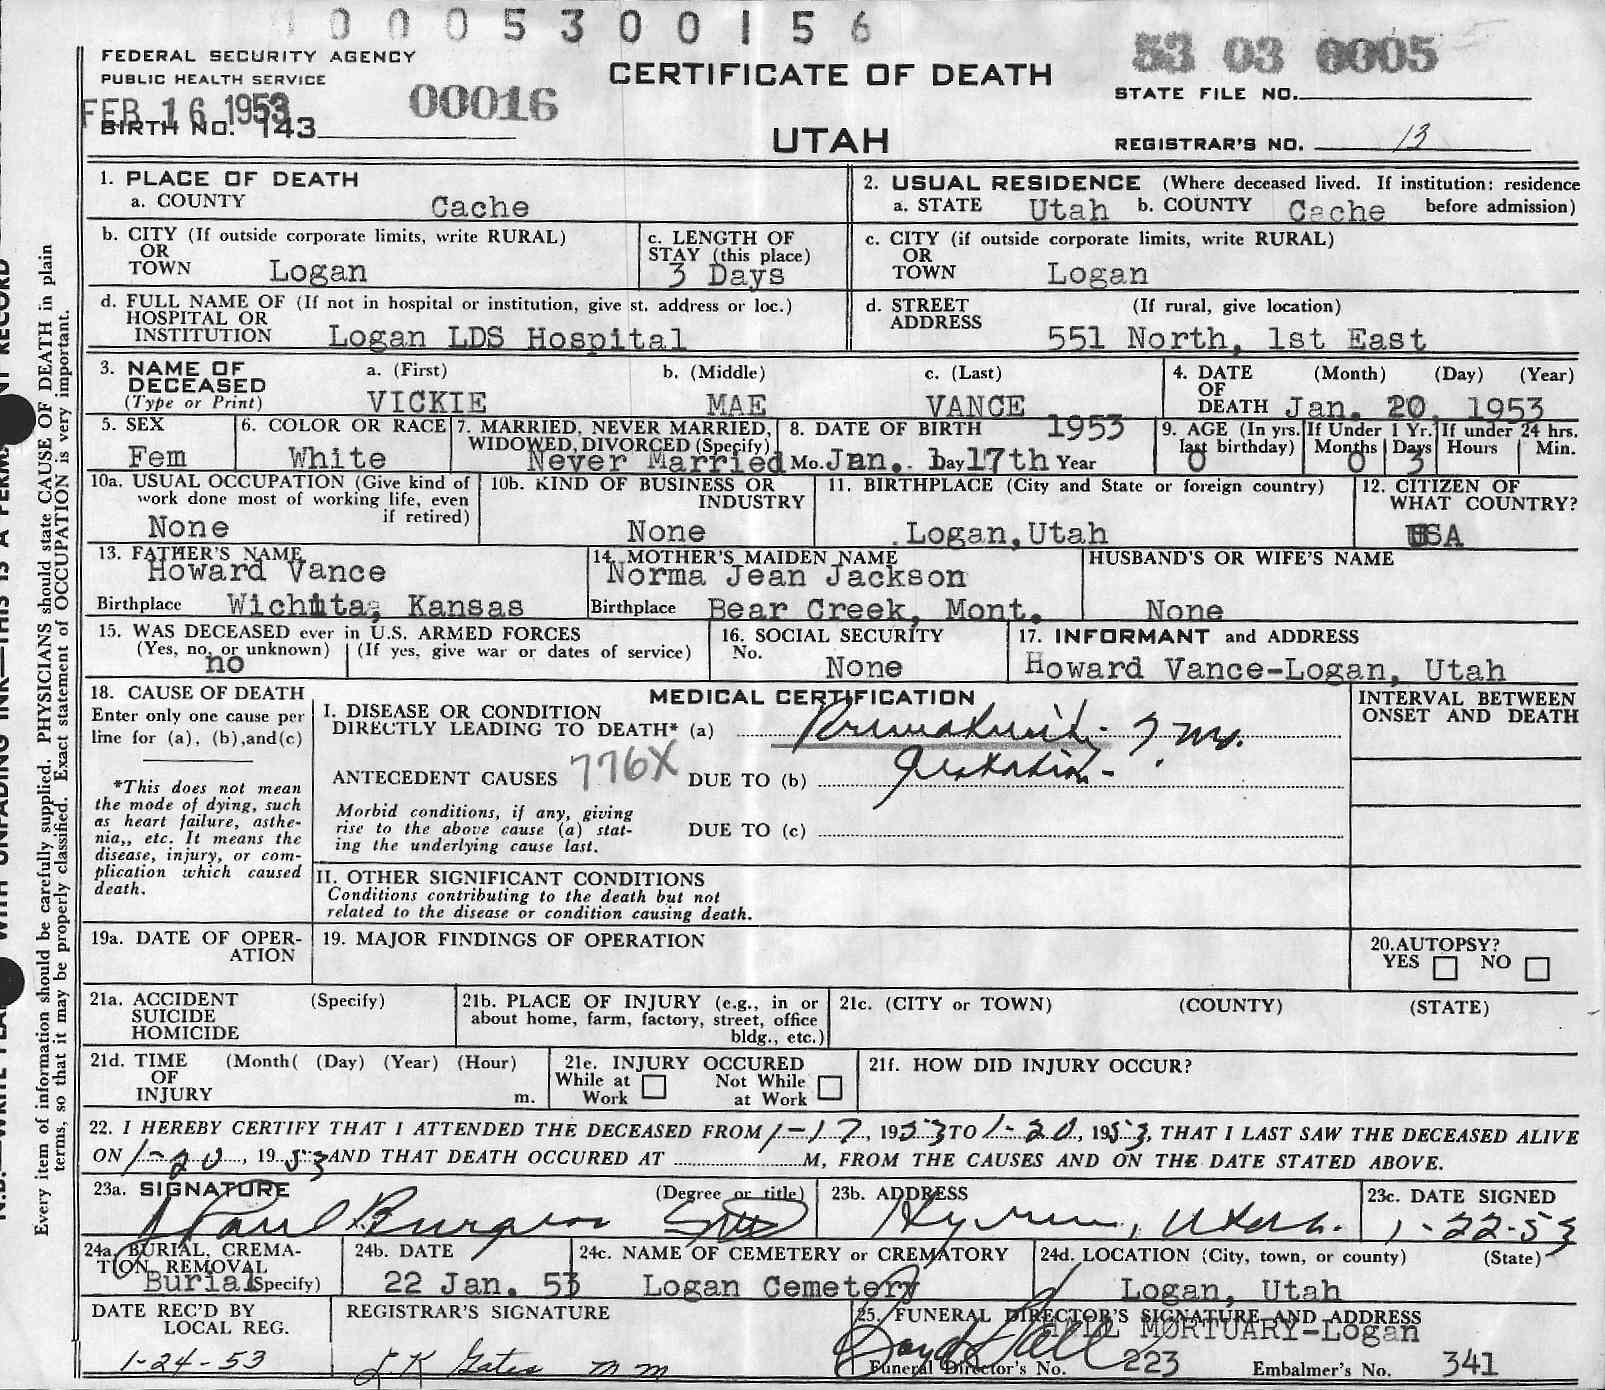 0005300156
FEDERAL SECURITY AGENCY
PUBLIC HEALTH SERVICE
FEB 16 1953
BIRTH NO. 143
00016
CERTIFICATE OF DEATH
UTAH
53 03 0005
STATE FILE NO.
REGISTRAR'S NO. 13
1. PLACE OF DEATH
a. COUNTY Cache
2. USUAL RESIDENCE (Where deceased lived. If institution: residence
a. STATE Utah b. COUNTY Cache before admission)
b. CITY (If outside corporate limits, write RURAL)
OR
TOWN Logan
c. LENGTH OF
STAY (this place)
3 Days
c. CITY (if outside corporate limits, write RURAL)
OR
TOWN Logan
d. FULL NAME OF (If not in hospital or institution, give st. address or loc.)
HOSPITAL OR
INSTITUTION Logan LDS Hospital
d. STREET (If rural, give location)
ADDRESS
551 North, 1st East
3. NAME OF DECEASED
(Type or Print)
a. (First) b. (Middle) c. (Last)
VICKIE MAE VANCE
4. DATE (Month) (Day) (Year)
OF
DEATH Jan. 20, 1953
5. SEX
Fem
6. COLOR OR RACE
White
7. MARRIED, NEVER MARRIED,
WIDOWED, DIVORCED (Specify)
Never Married
8. DATE OF BIRTH 1953
Mo. Jan. Day 17th Year
9. AGE (In yrs. last birthday)
0
If Under 1 Yr.
Months 0 Days 3
If under 24 hrs.
Hours Min.
10a. USUAL OCCUPATION (Give kind of
work done most of working life, even
if retired)
None
10b. KIND OF BUSINESS OR
INDUSTRY
None
11. BIRTHPLACE (City and State or foreign country)
Logan, Utah
12. CITIZEN OF
WHAT COUNTRY?
USA
13. FATHER'S NAME
Howard Vance
Birthplace Wichita, Kansas
14. MOTHER'S MAIDEN NAME
Norma Jean Jackson
Birthplace Bear Creek, Mont.
HUSBAND'S OR WIFE'S NAME
None
15. WAS DECEASED ever in U.S. ARMED FORCES
(Yes, no, or unknown) (If yes, give war or dates of service)
no
16. SOCIAL SECURITY
No.
None
17. INFORMANT and ADDRESS
Howard Vance-Logan, Utah
18. CAUSE OF DEATH
Enter only one cause per
line for (a), (b), and (c)
*This does not mean
the mode of dying, such
as heart failure, asthe-
nia,, etc. It means the
disease, injury, or com-
plication which caused
death.
MEDICAL CERTIFICATION
I. DISEASE OR CONDITION
DIRECTLY LEADING TO DEATH* (a) Prematurity - 7 mo.
gestation -
ANTECEDENT CAUSES 776X DUE TO (b)
Morbid conditions, if any, giving
rise to the above cause (a) stat-
ing the underlying cause last.
DUE TO (c)
II. OTHER SIGNIFICANT CONDITIONS
Conditions contributing to the death but not
related to the disease or condition causing death.
INTERVAL BETWEEN
ONSET AND DEATH
19a. DATE OF OPER-
ATION
19. MAJOR FINDINGS OF OPERATION
20. AUTOPSY?
YES NO
21a. ACCIDENT (Specify)
SUICIDE
HOMICIDE
21b. PLACE OF INJURY (e.g., in or
about home, farm, factory, street, office
bldg., etc.)
21c. (CITY or TOWN) (COUNTY) (STATE)
21d. TIME (Month( (Day) (Year) (Hour)
OF
INJURY m.
21e. INJURY OCCURED
While at Work Not While at Work
21f. HOW DID INJURY OCCUR?
22. I HEREBY CERTIFY THAT I ATTENDED THE DECEASED FROM 1-17, 1953 TO 1-20, 1953, THAT I LAST SAW THE DECEASED ALIVE
ON 1-20, 1953 AND THAT DEATH OCCURED AT M, FROM THE CAUSES AND ON THE DATE STATED ABOVE.
23a. SIGNATURE (Degree or title)
Paul Burgess
23b. ADDRESS
Hyrum, Utah.
23c. DATE SIGNED
1-22-53
24a. BURIAL, CREMA-
TION, REMOVAL
Burial (Specify)
24b. DATE
22 Jan. 53
24c. NAME OF CEMETERY or CREMATORY
Logan Cemetery
24d. LOCATION (City, town, or county) (State)
Logan, Utah
DATE REC'D BY
LOCAL REG.
1-24-53
REGISTRAR'S SIGNATURE
25. FUNERAL DIRECTOR'S SIGNATURE AND ADDRESS
HALL MORTUARY-Logan
Funeral Director's No. 223 Embalmer's No. 341
N.B.—WRITE PLAINLY WITH UNFADING INK—THIS IS A PERMANENT RECORD
Every item of information should be carefully supplied. PHYSICIANS should state CAUSE OF DEATH in plain
terms, so that it may be properly classified. Exact statement of OCCUPATION is very important.